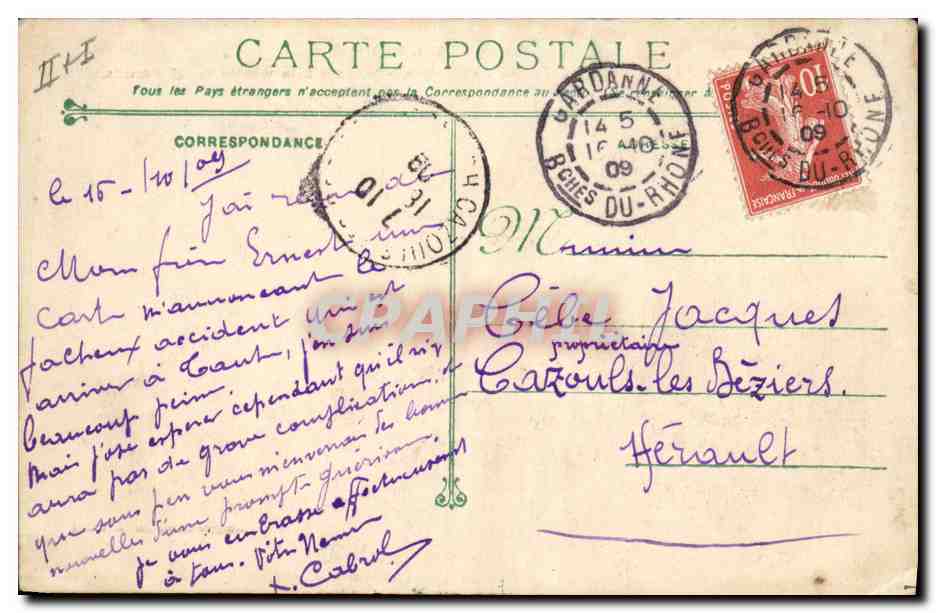 II+I
CARTE POSTALE
Tous les Pays étrangers n'acceptent pas la Correspondance au
CORRESPONDANCE
ADRESSE
GARDANNE
14 5
16 -10
09
Bches DU-RHONE
GARDANNE
14 5
16 -10
09
Bches DU-RHONE
10
CAZOULS
le 15-/10/09
J'ai reçu de
Mon frère Ernest une
Carte m'annonçant le
facheux accident qui est
arriver à Tante, j'en suis
beaucoup peiné
Mais j'ose esperer cependant qu'il n'y
aura pas de grave complications, et
que sous peu vous m'enverrais des bonnes
nouvelles d'une prompte guérison.
Je vous embrasse affectueusement
à tous. Votre Neveu
Cabrol
Monsieur
Cèbe Jacques
propriétaire
Cazouls-les-Béziers.
Hérault
CPAPHIL